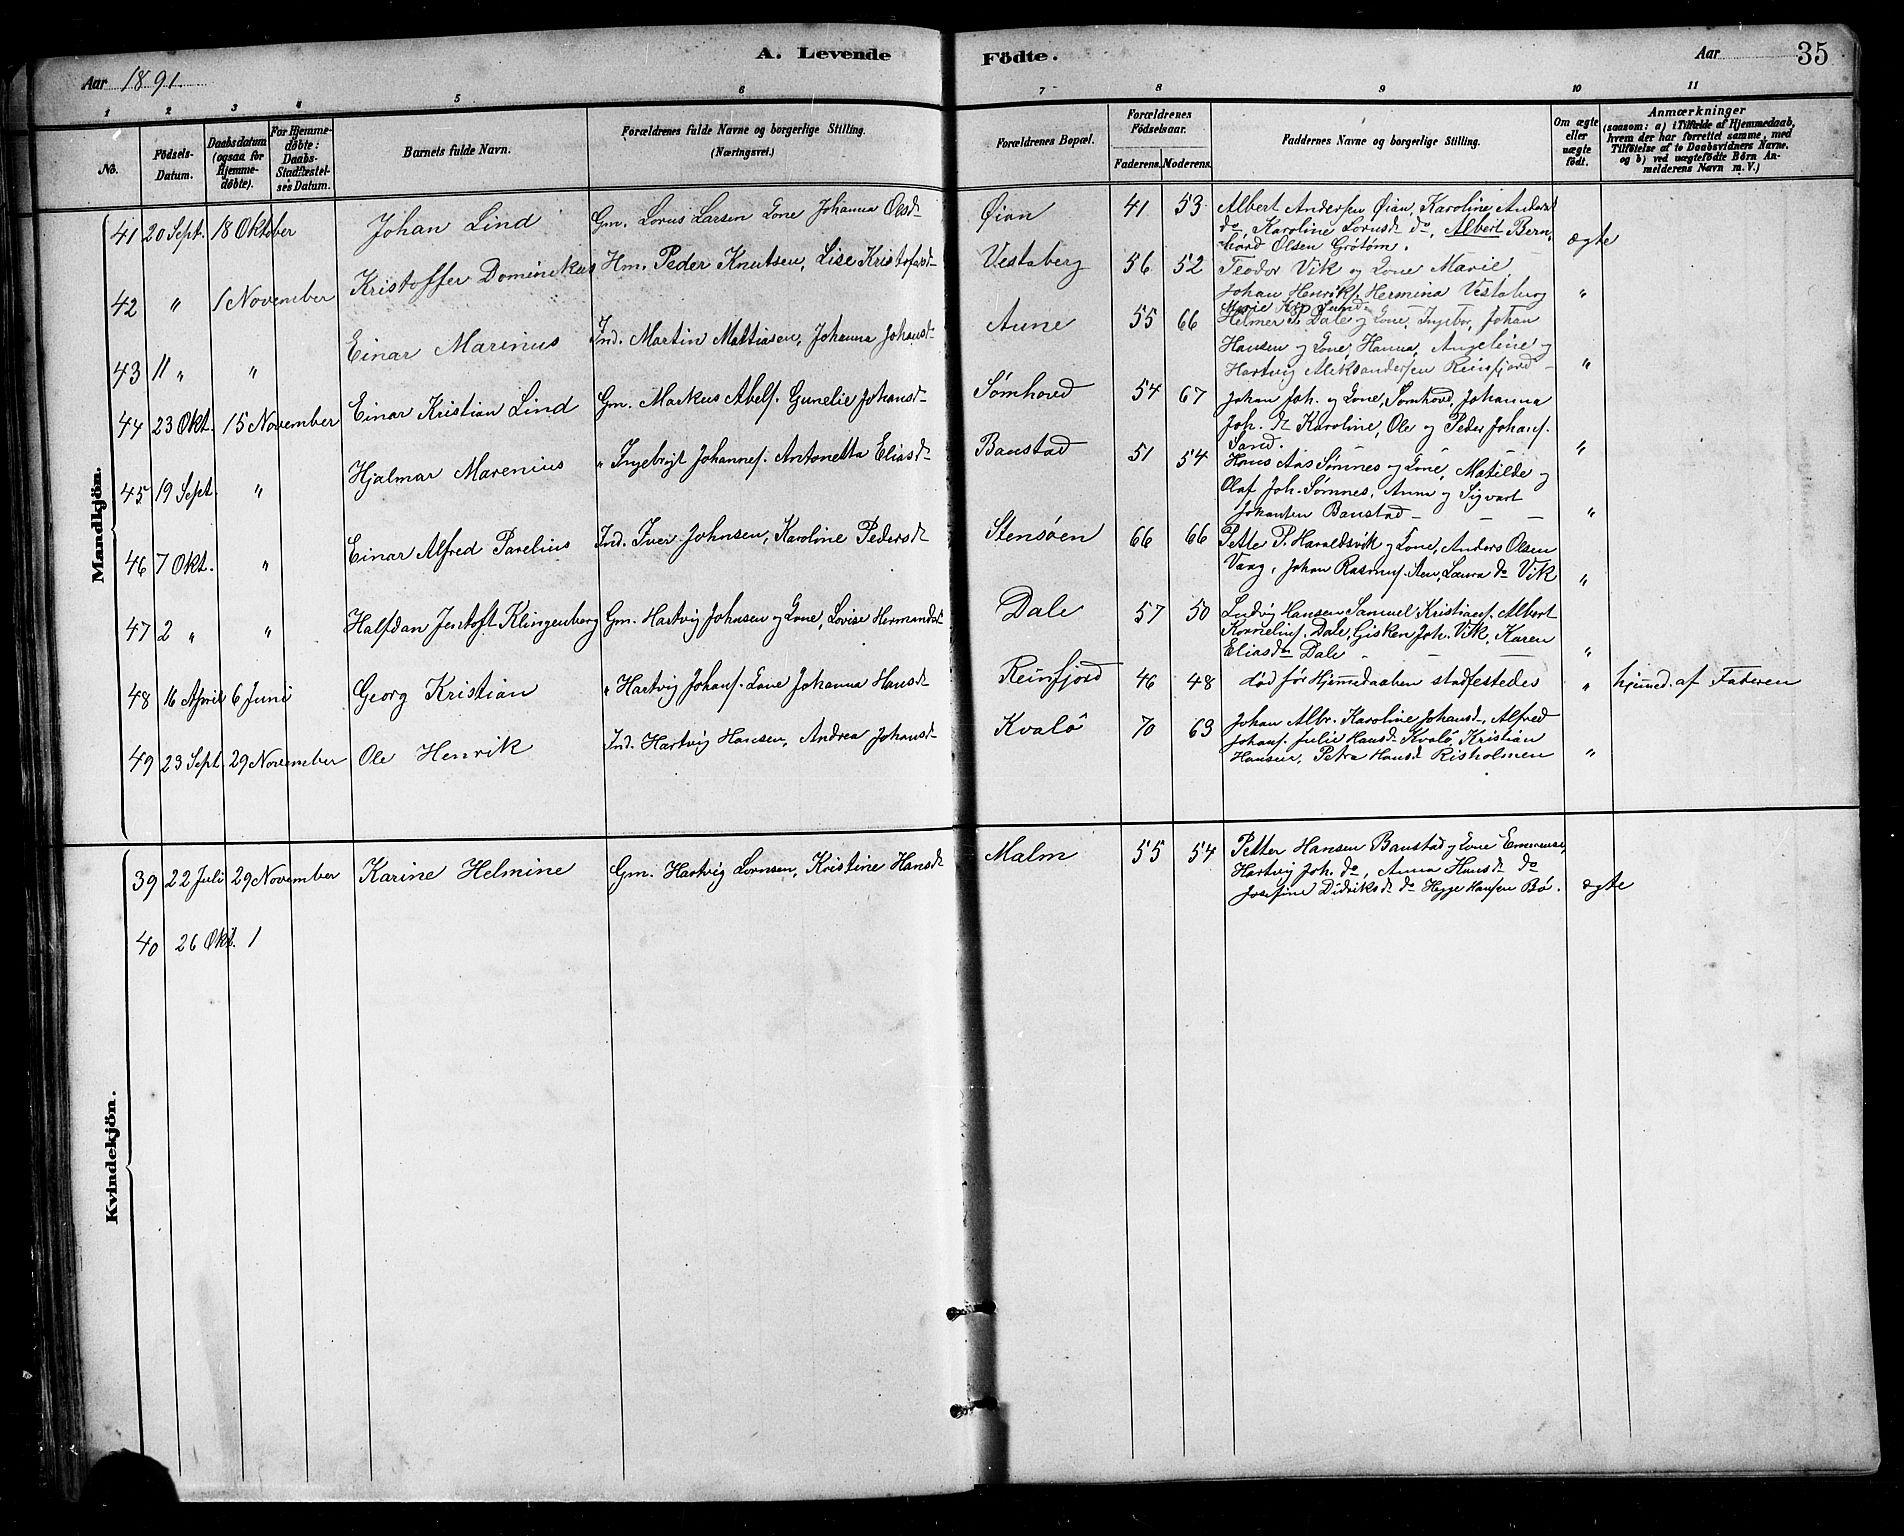 A. Levende Födte.
35
Aar 1891.
Aar
1 2 3 4 5 6 7 8 9 10 11
No.
Födsels-Datum.
Daabsdatum (ogsaa for Hjemmedøbte).
For Hjemmedøbte: Daabs-Stadfæstelses Datum.
Barnets fulde Navn.
Forældrenes fulde Navne og borgerlige Stilling. (Næringsvei.)
Forældrenes Bopæl.
Forældrenes Födselsaar.
Faderens. Moderens.
Faddernes Navne og borgerlige Stilling.
Om ægte eller uægte födt.
Anmærkninger
(saasom: a) i Tilfælde af Hjemmedaab, hvem der har forrettet samme, med Tilföielse af to Daabsvidners Navne. og b) ved uægtefödte Börn Anmelderens Navn m. V.)
Mandkjön.
41 20 Sept. 18 Oktober Johan Lind Gm. Lorns Larsen Kone Johanna Olsd. Øian 41 53 Albert Andersen Øian, Karoline Andersd
do, Karoline Lornsd do, Albert Bern-
hard Olsen Grötöm. ægte
42 " 1 November Kristoffer Dominikus Hm. Peder Knutsen, Lise Kristofersd. Vestaberg 56 52 Teodor Vik og Kone Marie
Johan Henriks. Hermina Vestaberg "
Marie Sund
43 11 " " Einar Marinus Ind. Martin Mattiasen, Johanna Johansd. Aune 55 66 Helmer P. Dale og Kone, Ingebor, Johan
Hansen og Kone Hanna, Angeline og
Hartvig Aleksandersen Reinfjord "
44 23 Okt. 15 November Einar Kristian Lind Gm. Markus Abels. Gunelie Johansd. Sømhovd 54 67 Johan Joh. og Kone, Sømhovd, Johanna
Joh. Karoline, Ole og Peder Johans.
Sand. "
45 19 Sept. " Hjalmar Marenius " Ingebrigt Johannes. Antonetta Eliasd. Baustad 51 54 Hans Aas Sømnes og Kone, Matilde og
Olaf Joh. Sømnes, Anna og Sigvart
Johansen Baustad "
46 7 Okt. " Einar Alfred Parelius Ind. Iver Johnsen, Karoline Pedersd. Stensøen 66 66 Petter P. Haraldsvik og Kone, Anders Olsen
Vaag, Johan Rasmus. Laura do Vik "
47 2 " " Halfdan Jentoft Klingenberg Gm. Hartvig Johnsen og Kone, Lovise Hermandsd. Dale 57 50 Ludvig Hansen Samuel Kristians. Albert
Kornelius. Dale, Gisken Joh. Vik, Karen
Eliasd Dale "
48 16 April 6 Juni Georg Kristian " Hartvig Johans. Kone Johanna Hansd. Reinfjord 46 48 död för Hjemmedaaben stadfestedes " hjemmed. af Faderen
49 23 Sept 29 November Ole Henrik Ind. Hartvig Hansen, Andrea Johansd. Kvalö 70 63 Johan Albr. Karoline Johansd, Alfred
Johans. Julie Hansd. Kvalö, Kristian
Hansen, Petra Hansd Risholmen "
Kvindekjön.
39 22 Juli 29 November Karine Helmine Gm. Hartvig Lornsen, Kristine Hansd. Malm 55 54 Petter Hansen Baustad og Kone Emerense,
Hartvig Joh. do, Anna Hansd do
Josefine Didriksd do Hegge Hansen Bö. ægte
40 26 Okt. 1